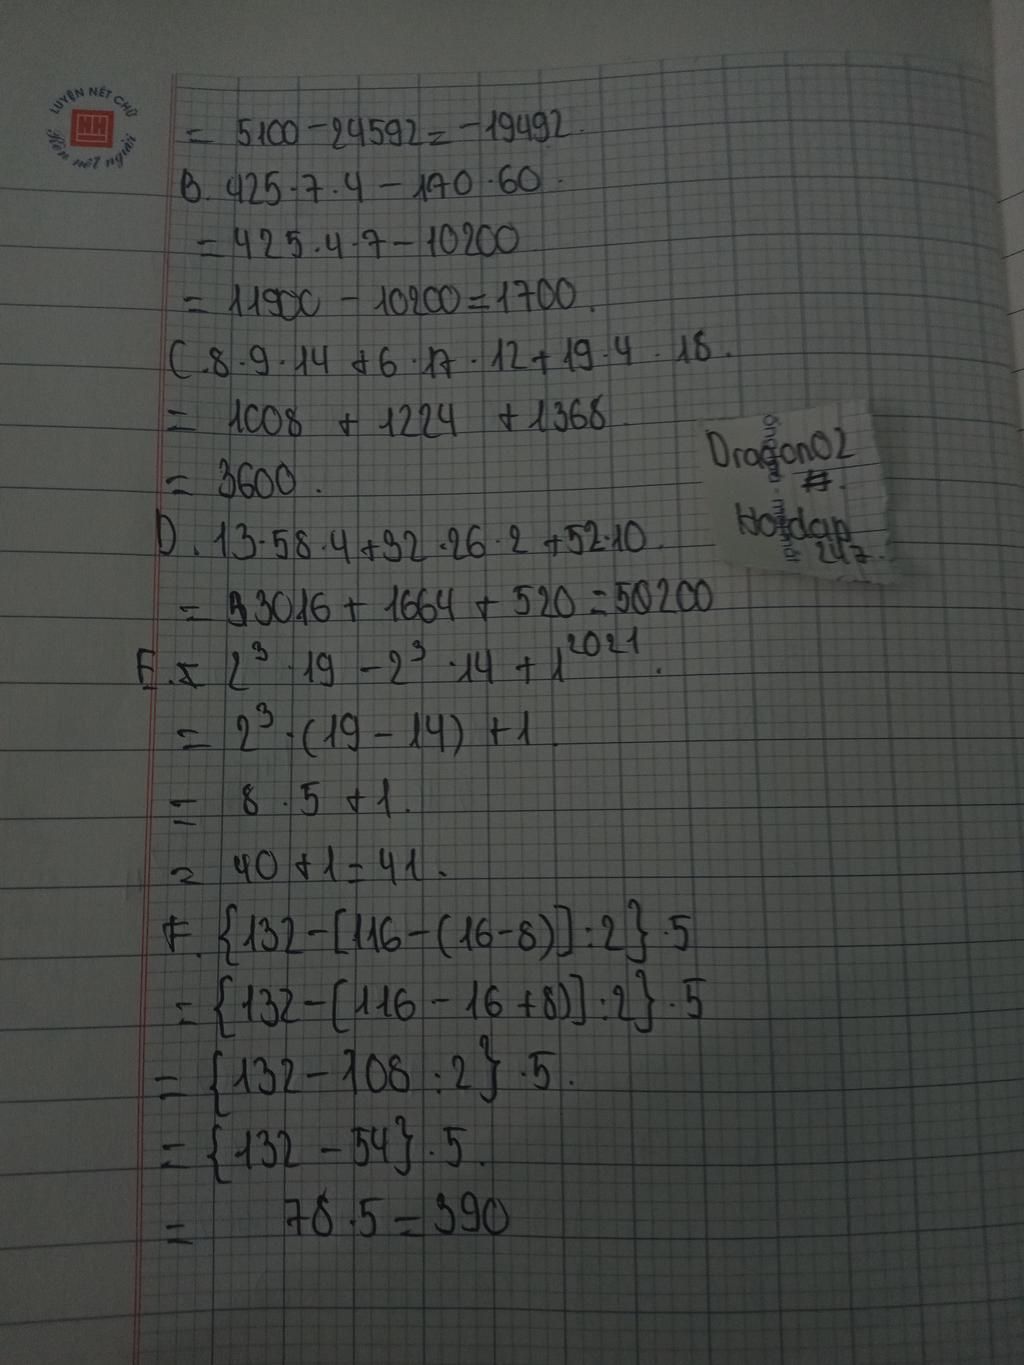 LUYỆN NẾT CHỮ
Rèn nết người
= 5100 - 24592 = -19492.
B. 425 · 7 · 4 - 170 · 60.
= 425 · 4 · 7 - 10200
= 11900 - 10200 = 1700.
C. 8 · 9 · 14 + 6 · 17 · 12 + 19 · 4 · 18.
= 1008 + 1224 + 1368
= 3600.
Dragon02
#.
Hoidap
247.
D. 13 · 58 · 4 + 32 · 26 · 2 + 52 · 10.
= 3016 + 1664 + 520 = 50200
E. = 2³ · 19 - 2³ · 14 + 1²⁰²¹.
= 2³ · (19 - 14) + 1.
= 8 · 5 + 1.
= 40 + 1 = 41.
F. {132 - [116 - (16 - 8)] : 2} · 5
= {132 - [116 - 16 + 8)] : 2} · 5
= {132 - 108 : 2} · 5.
= {132 - 54} · 5.
= 78 · 5 = 390